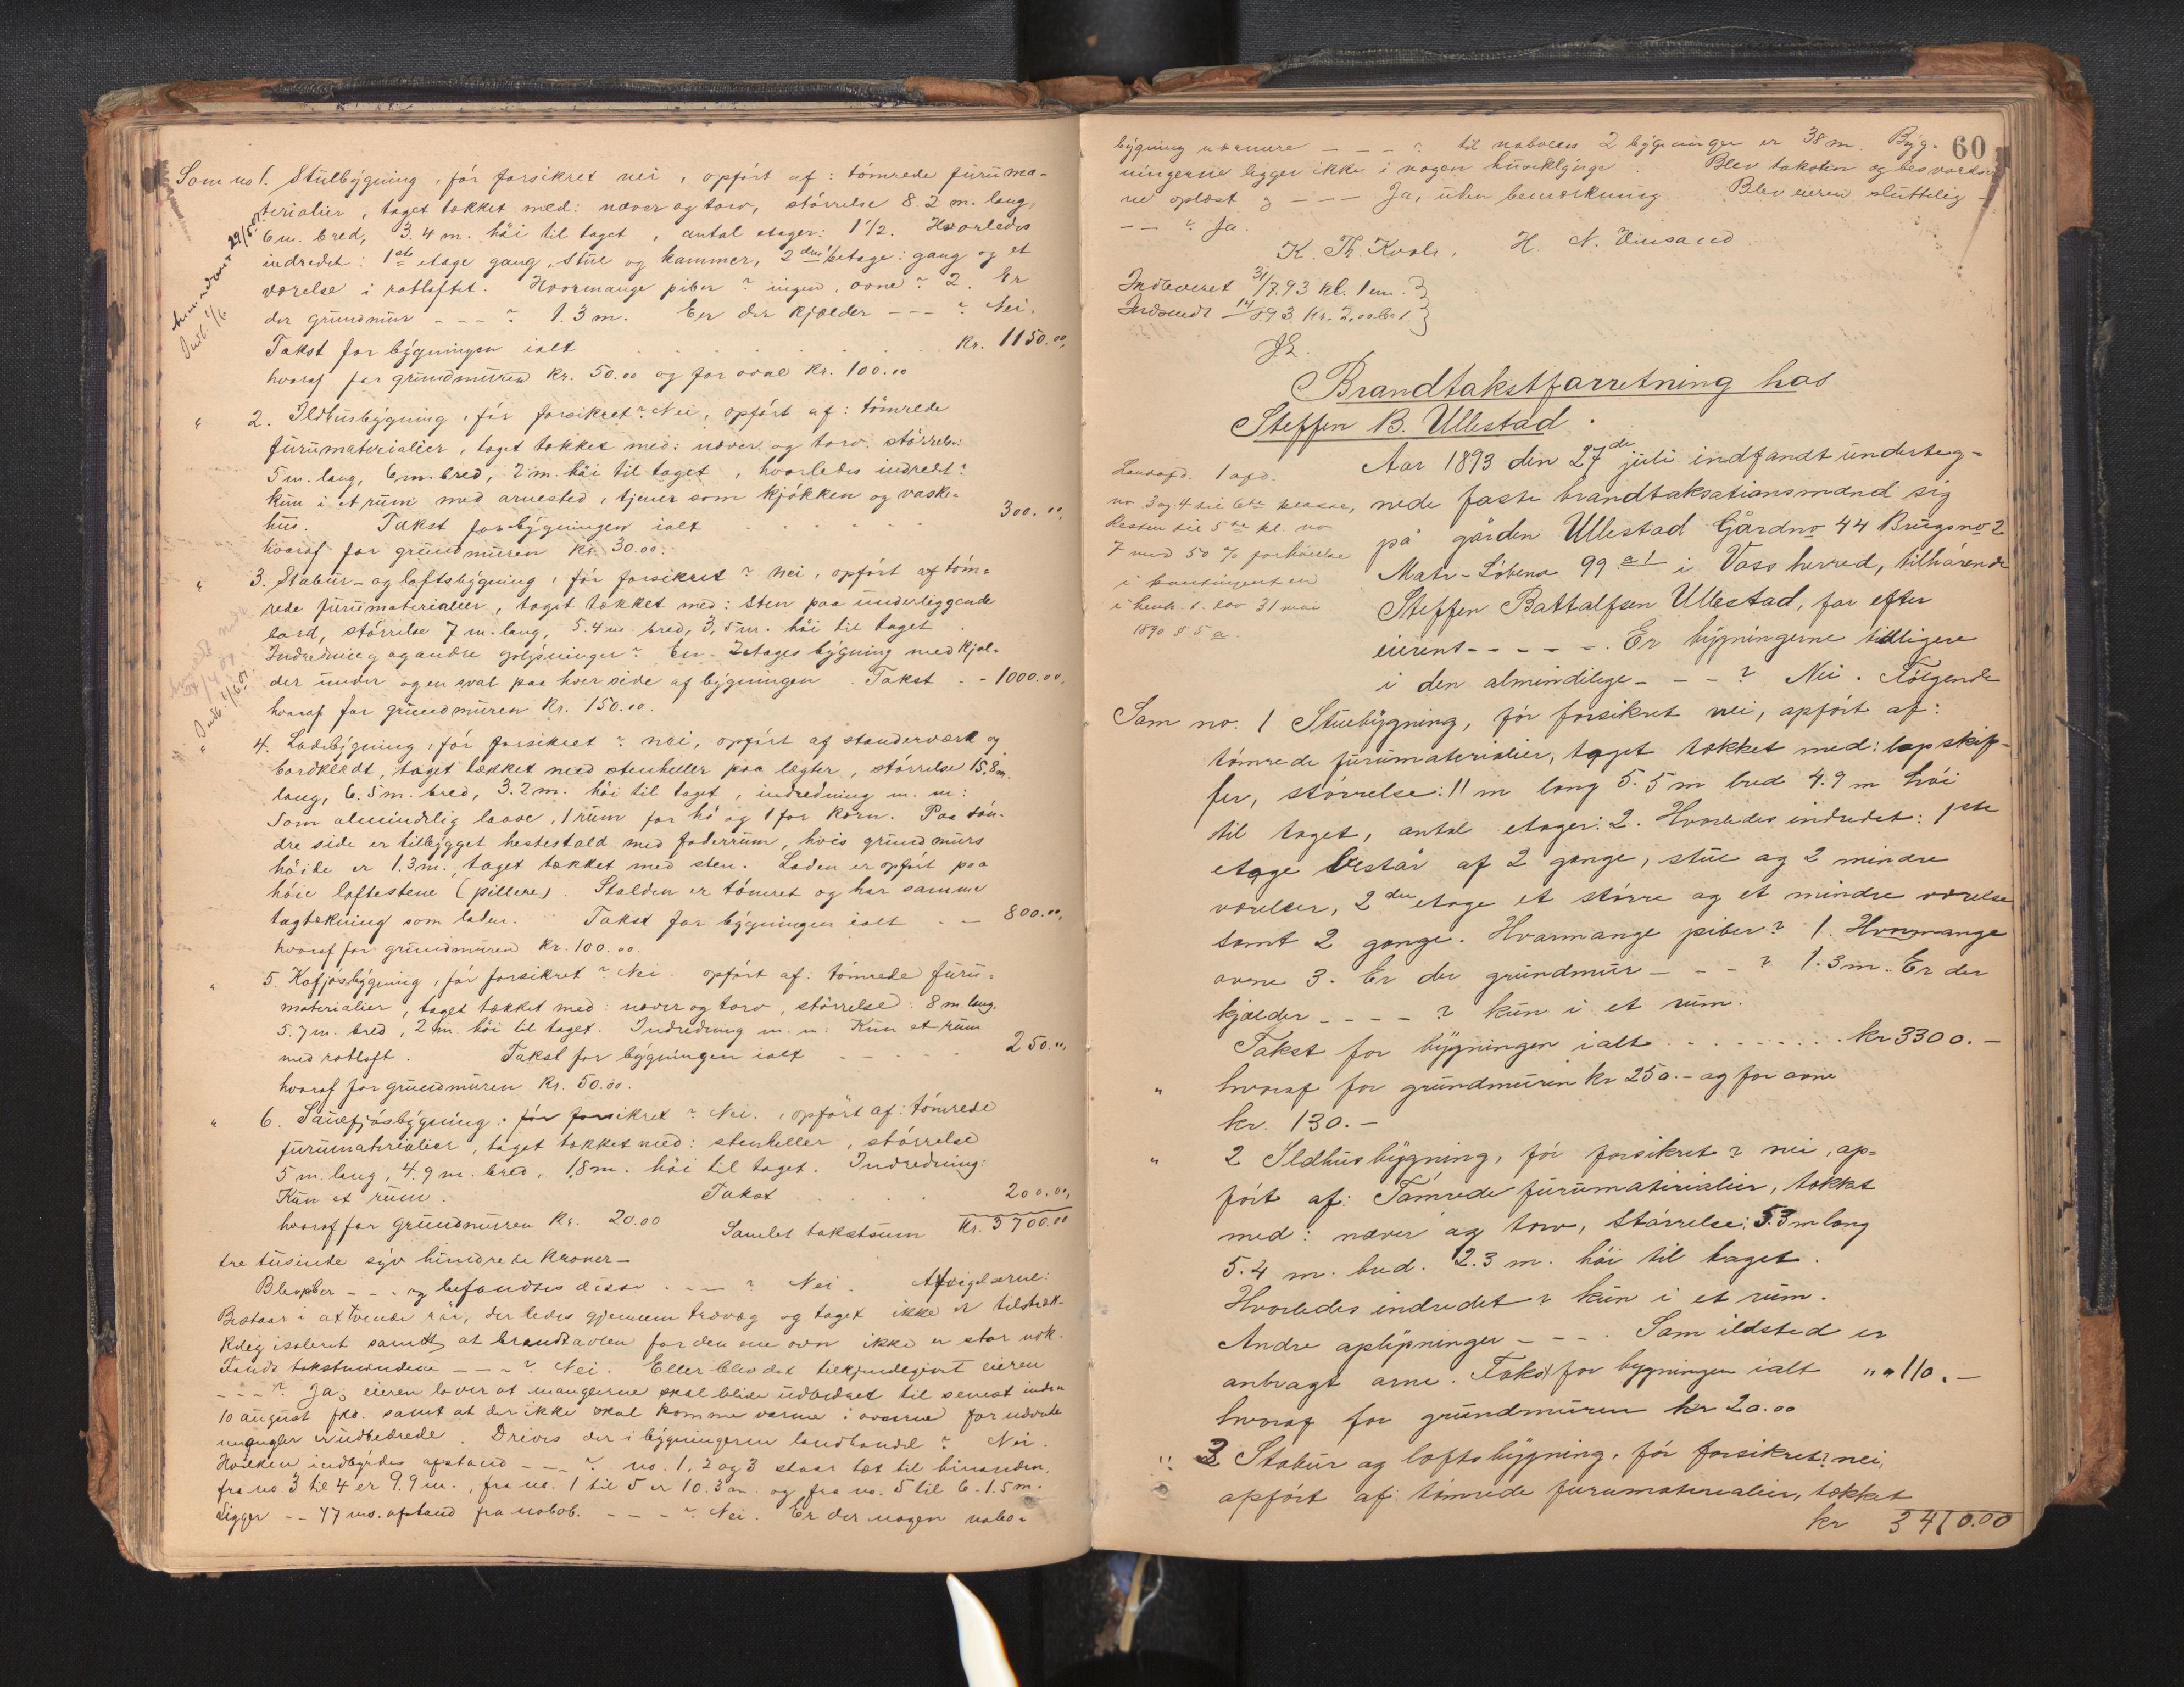 Som no 1. Stuebygning, før forsikret nei, opført af: tømrede furuma-
terialier, taget tækket med: næver og torv, størrelse 8.2 m. lang,
6 m. bred, 3.4 m. høi til taget, antal etager: 1½. Hvorledes
indredet: 1ste etage gang, stue og kammer, 2den ½ etage: gang og et
værelse i rotloftet. Hvormange piber? ingen, ovne? 2. Er
der grundmur - - - ? 1.3 m. Er der kjælder - - - ? Nei.
Takst for bygningen ialt . . . . . . . Kr. 1150.00,
hvoraf for grundmuren Kr. 50.00 og for ovne Kr. 100.00
29/5.01.
Indb. 4/6
" 2. Ildhusbygning, før forsikret? Nei, opført af: tømrede
furumaterialier, taget tækket med: næver og torv størrelse:
5 m. lang, 6 m. bred, 2 m. høi til taget, hvorledes indredt?
kun i et rum med arnested, tjener som kjøkken og vaske-
hus. Takst for bygningen ialt . . . . . . 300.00,
hvoraf for grundmuren Kr. 30.00.
" 3. Stabur- og loftsbygning, før forsikret? nei, opført af tøm-
rede furumaterialier, taget tækket med: Sten paa underliggende
bord, størrelse 7 m. lang, 5.4 m. bred, 3,5 m. høi til taget.
Indredning og andre oplysninger? En 2 etages bygning med kjæl-
der under og en sval paa hver side af bygningen. Takst - - 1000.00,
hvoraf for grundmuren Kr. 150.00.
" Indb. 4/6.01
4. Ladebygning, før forsikret? nei, opført af standerværk og
bordklædt, taget tækket med stenheller paa lægter, størrelse 15,8 m.
lang, 6.5 m. bred, 3.2 m. høi til taget, indredning m. m:
Som almindelig laave, 1 rum for hø og 1 for korn. Paa søn-
dre side er tilbygget hestestald med foderrum, hvis grundmurs
høide er 1.3 m., taget tækket med sten. Laden er opført paa
høie loftestene (pillere). Stalden er tømret og har samme
tagtækning som laden. Takst for bygningen ialt . - 800.00,
hvoraf for grundmuren Kr. 100.00.
" 5. Kofjøsbygning, før forsikret? Nei. opført af: tømrede furu-
materialier, taget tækket med: næver og torv, størrelse: 8 m. lang.
5.7 m. bred, 2 m. høi til taget. Indredning m. m: Kun et rum
med rotloft. Takst for bygningen ialt . . . . . 250.00,
hvoraf for grundmuren Kr. 50.00.
" 6. Sauefjøsbygning: før forsikret? Nei., opført af: tømrede
furumaterialier, taget tækket med: stenheller, størrelse
5 m. lang, 4.9 m. bred, 1,8 m. høi til taget. Indredning:
Kun et rum. Takst . . . . 200.00,
hvoraf for grundmuren Kr. 20.00 Samlet takstsum Kr. 3700.00
tre tusinde syv hundrede kroner-
Blev piber - - - og befandtes disse - - - ? Nei. Afvigelserne:
Bestaar i at tvende rør, der ledes gjennem trævæg og taget ikke er tilstræk-
kelig isoleret samt, at brandtavlen for den ene ovn ikke er stor nok.
Fandt takstmændene - - - ? Nei. Eller blev det tilkjendegivet eieren
- - - ? Ja; eieren lover at manglerne skal blive udbedret til senest inden
10 august fkd. samt at der ikke skal komme varme i ovnene før nævnte
mangler er udbedrede. Drives der i bygningerne landhandel? Nei.
Hvilken indbyrdes afstand - - - ? no. 1, 2 og 3 staar tæt til hinanden,
fra no. 3 til 4 er 9.9 m., fra no. 1 til 5 er 10.3 m. og fra no. 5 til 6 - 1.5 m.
Ligger - - 47 ms. afstand fra nabob. - - - ? Nei. Er der nogen nabo-
60
bygning nærmere - - - ? til naboens 2 bygninger er 38 m. Byg-
ningerne ligger ikke i nogen husklynge. Blev taksten og besvarelser-
ne oplæst og - - - Ja, uden bemærkning. Blev eieren sluttelig -
- - ? Ja.
K. Th. Kvale, H. N. Vinsand.
Indleveret 31/7.93 kl. 1 em. }
Indsendt 14/8 93. Kr. 2,00 }
Brandtakstforretning hos
Steffen B. Ullestad.
Landafd. 1 afd.
no 3 og 4 til 6te klasse,
Resten til 5te kl. no
7 med 50 % forhøielse
i kontingenten
i henh. t. lov 31 mai
1890 § 5 a.
Aar 1893 den 27de juli indfandt underteg-
nede faste brandtaksationsmænd sig
på gården Ullestad Gårdno 44 Brugsno 2
Matr-Løbeno 99 a1 i Voss herred, tilhørende
Steffen Battalfsen Ullestad, for efter
eierens - - - - -. Er bygningerne tidligere
i den almindelige - - - ? Nei. Følgende
Som no. 1 Stuebygning, før forsikret nei, opført af:
tømrede furumaterialier, taget tækket med: lapskif-
fer, størrelse: 11 m lang 5.5 m bred 4.9 m høi
til taget, antal etager: 2. Hvorledes indredet: 1ste
etage består af 2 gange, stue og 2 mindre
værelser, 2den etage et større og et mindre værelse
samt 2 gange. Hvormange piber? 1. Hvormange
ovne 3. Er der grundmur - - - ? 1.3 m. Er der
kjælder - - - - ? kun i et rum.
Takst for bygningen ialt . . . . . . . . kr 3300.-
" hvoraf for grundmuren kr 250.- og for ovne
kr. 130.-
" 2 Ildhusbygning, før forsikret? nei, op-
ført af: Tømrede furumaterialier, tækket
med: næver og torv, Størrelse: 5.3 m lang
5.4 m. bred. 2.3 m. høi til taget.
Hvorledes indredet? kun i et rum.
Andre oplysninger - - -. Som ildsted er
anbragt arne. Takst for bygningen ialt " " 110.-
hvoraf for grundmuren kr 20.00
" 3 Stabur og loftsbygning, før forsikret? nei,
opført af tømrede furumaterialier, tækket
kr 3410.00